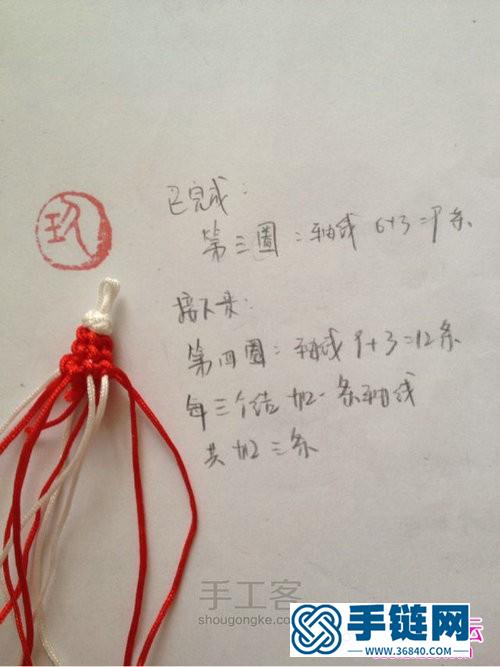 已完成：
第三圈：轴线 6+3=9条
玖
接下来：
第四圈：轴线 9+3=12条
每三个结加一条轴线
共加三条
手工客
shougongke.com
手链网
坛
www.36840.com